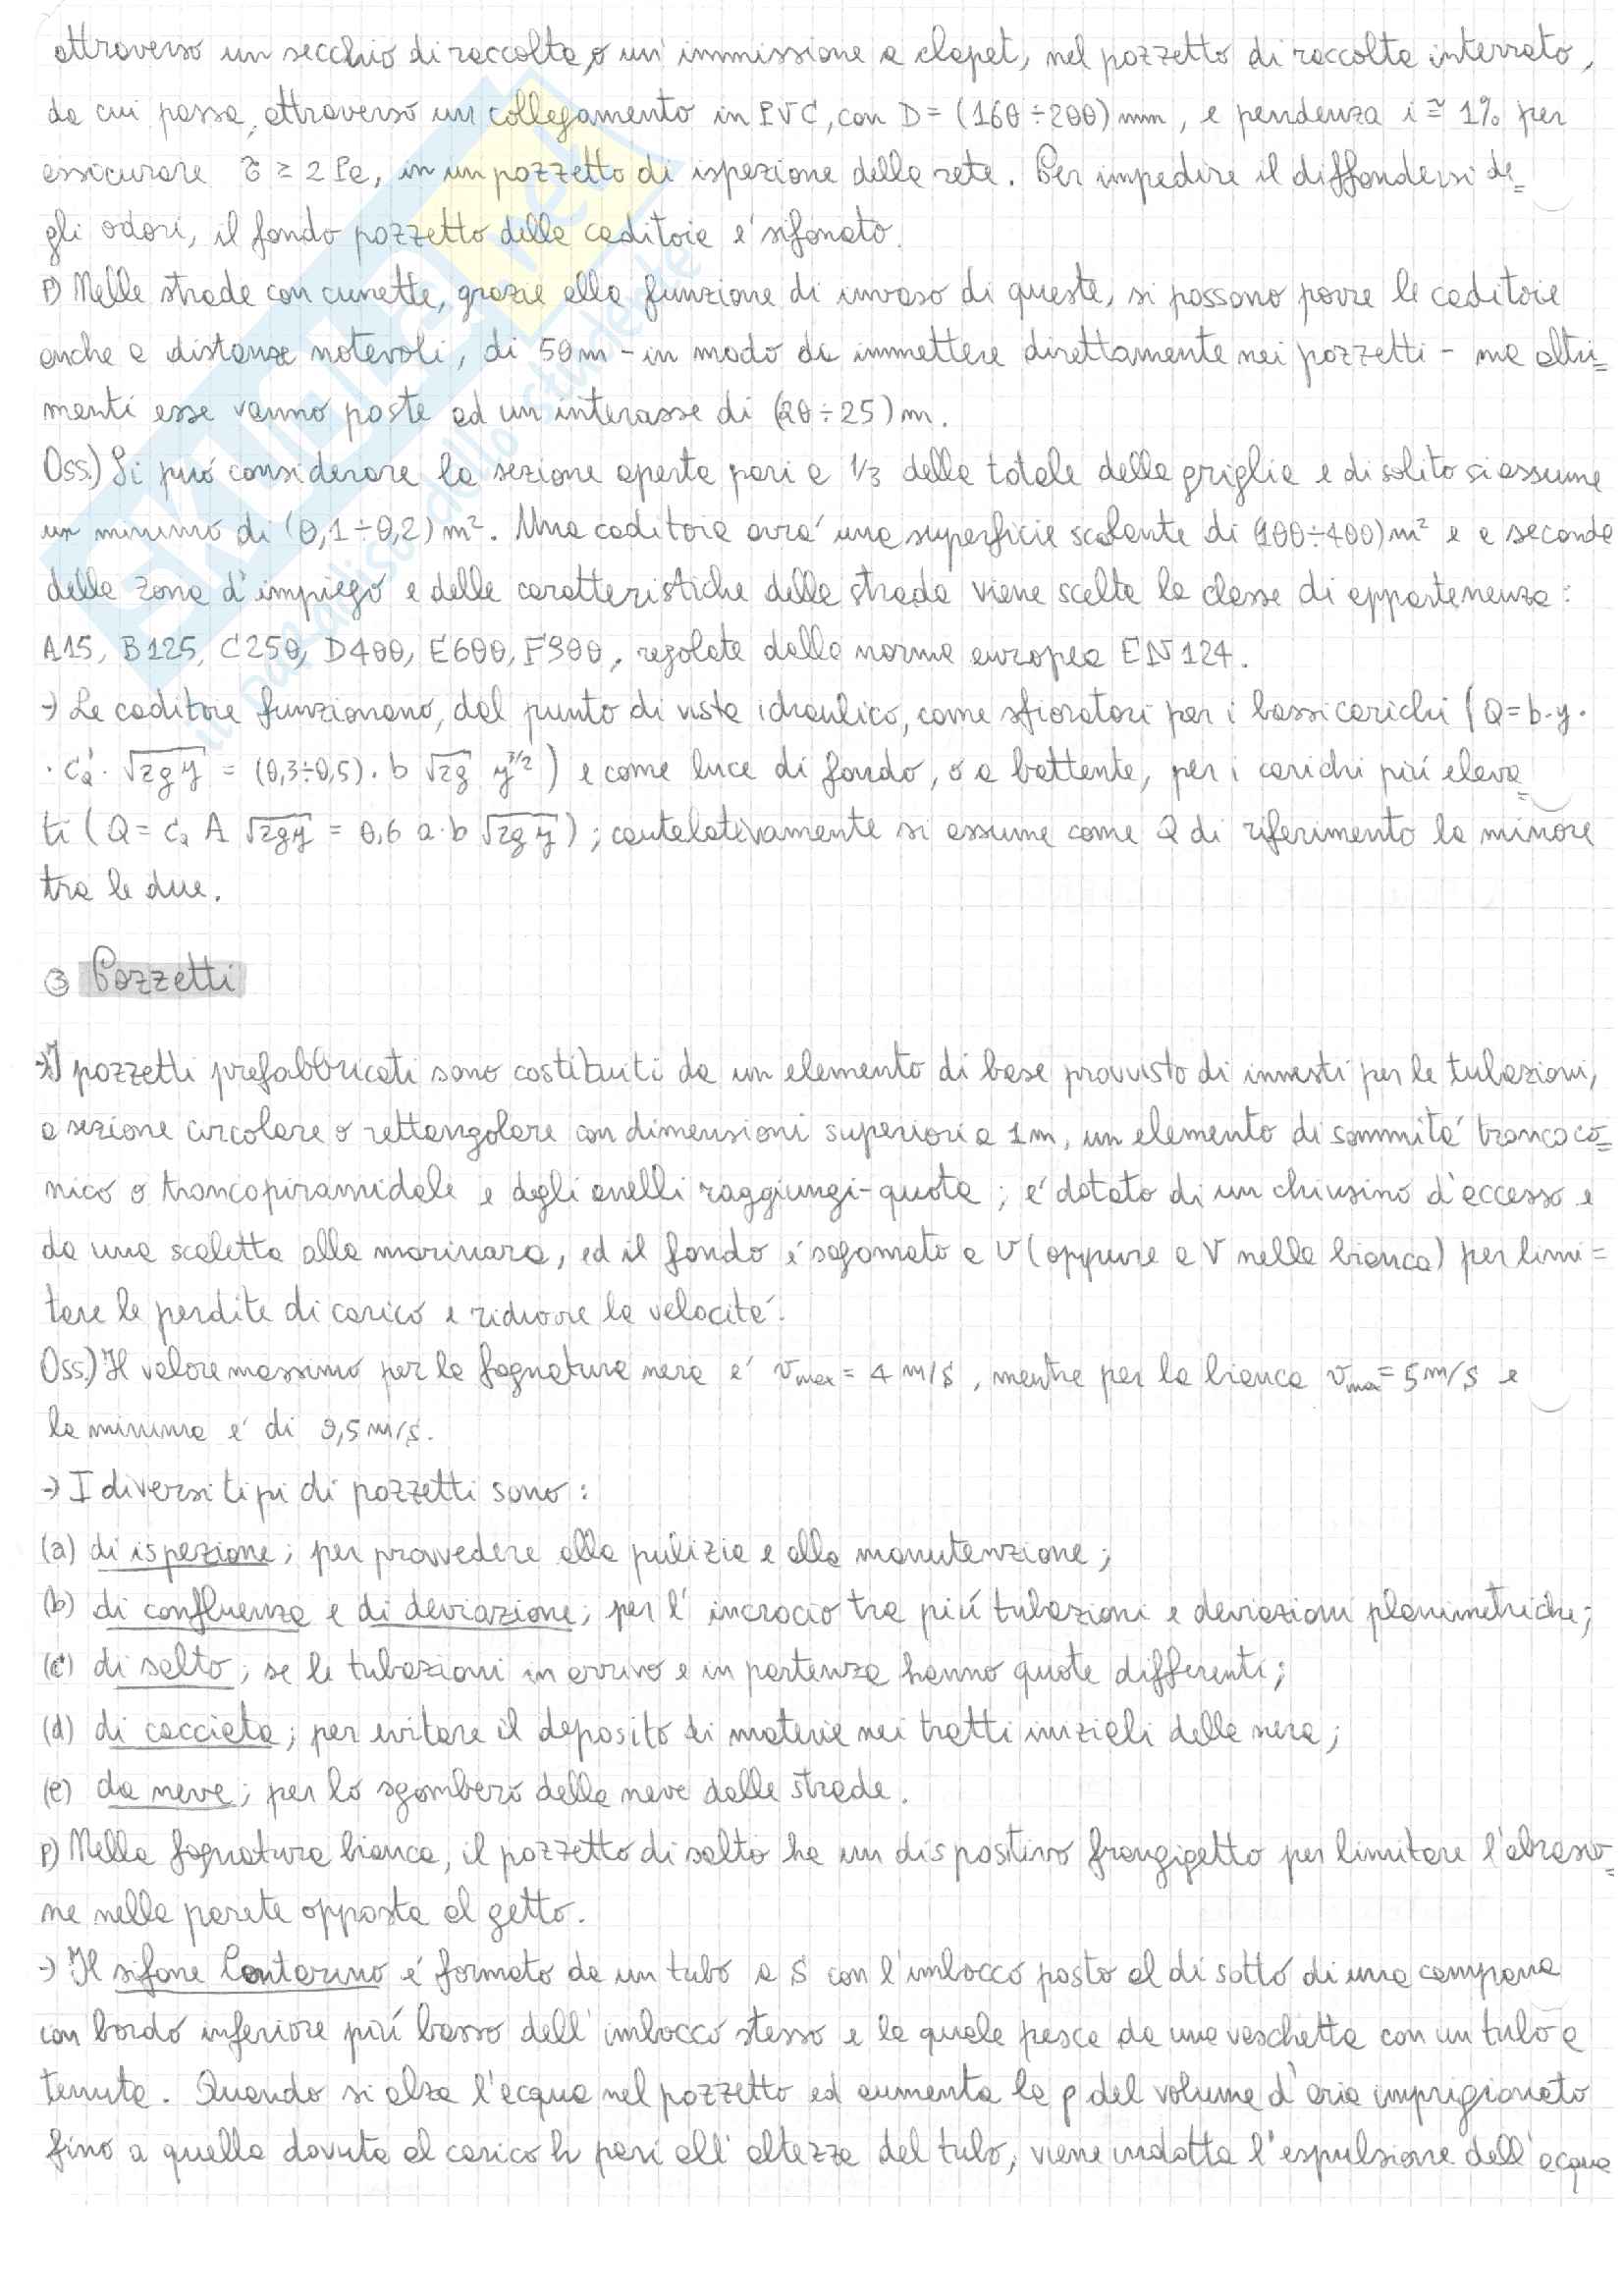 attraverso un secchio di raccolta, o un' immissione a clapet, nel pozzetto di raccolta interrato,
da cui passa, attraverso un collegamento in PVC, con D = (160÷200) mm, e pendenza i ≅ 1% per
assicurare τ ≥ 2 Pa, in un pozzetto di ispezione della rete. Per impedire il diffondersi de=
gli odori, il fondo pozzetto della caditoia e' sifonato.
P) Nelle strade con cunette, grazie alla funzione di invaso di queste, si possono porre le caditoie
anche a distanze notevoli, di 50m - in modo da immettere direttamente nei pozzetti - ma altri=
menti esse vanno poste ad un interasse di (20÷25) m.
Oss.) Si può considerare la sezione aperta pari a 1/3 della totale della griglia e di solito si assume
un minimo di (0,1÷0,2) m². Una caditoia avra' una superficie scolante di (100÷400) m² e a seconda
della zona d'impiego e delle caratteristiche della strada viene scelta la classe di appartenenza:
A15, B125, C250, D400, E600, F900, regolate dalla norma europea EN 124.
→ Le caditoie funzionano, dal punto di vista idraulico, come sfioratori per i bassi carichi (Q = b·y·
· C'Q · √2gy = (0,3÷0,5) · b √2g y^3/2) e come luce di fondo, o a battente, per i carichi più eleva=
ti (Q = CQ A √2gy = 0,6 a·b √2gy); cautelativamente si assume come Q di riferimento la minore
tra le due.
③ Pozzetti
→ I pozzetti prefabbricati sono costituiti da un elemento di base provvisto di innesti per le tubazioni,
a sezione circolare o rettangolare con dimensioni superiori a 1m, un elemento di sommita' troncoco=
nico o troncopiramidale e degli anelli raggiungi-quota; e' dotato di un chiusino d'accesso e
da una scaletta alla marinara, ed il fondo e' sagomato a U (oppure a V nella bianca) per limi=
tare le perdite di carico e ridurre la velocita'.
Oss.) Il valore massimo per la fognatura nera e' vmax = 4 m/s, mentre per la bianca vmax = 5 m/s e
la minima e' di 0,5 m/s.
→ I diversi tipi di pozzetti sono:
(a) di ispezione; per provvedere alla pulizia e alla manutenzione;
(b) di confluenza e di deviazione; per l' incrocio tra più tubazioni e deviazioni planimetriche;
(c) di salto; se le tubazioni in arrivo e in partenza hanno quote differenti;
(d) di cacciata; per evitare il deposito di materie nei tratti iniziali della nera;
(e) da neve; per lo sgombero della neve dalle strade.
P) Nella fognatura bianca, il pozzetto di salto ha un dispositivo frangigetto per limitare l'abrasio=
ne nella parete opposta al getto.
→ Il sifone Contarino e' formato da un tubo a S con l'imbocco posto al di sotto di una campana
con bordo inferiore più basso dell' imbocco stesso e la quale pesca da una vaschetta con un tubo a
tenuta. Quando si alza l'acqua nel pozzetto ed aumenta la p del volume d'aria imprigionato
fino a quella dovuta al carico h pari all' altezza del tubo, viene indotta l'espulsione dell'acqua